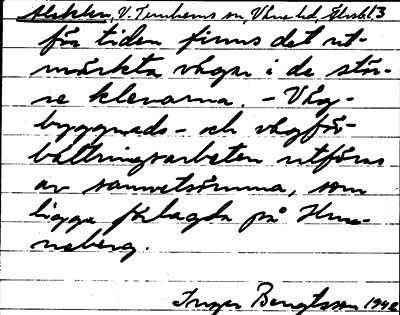 Klickten, V. Tunhems sn, Väne hd, Älvsb.l. 3
För tiden finns det ut-
märkta vägar i de stör-
re klevarna. - Väg-
byggnads- och vägför-
bättringsarbeten utföras
av samvetsömma, som
ligga förlagda på Hun-
neberg.
Inger Bengtsson 1942